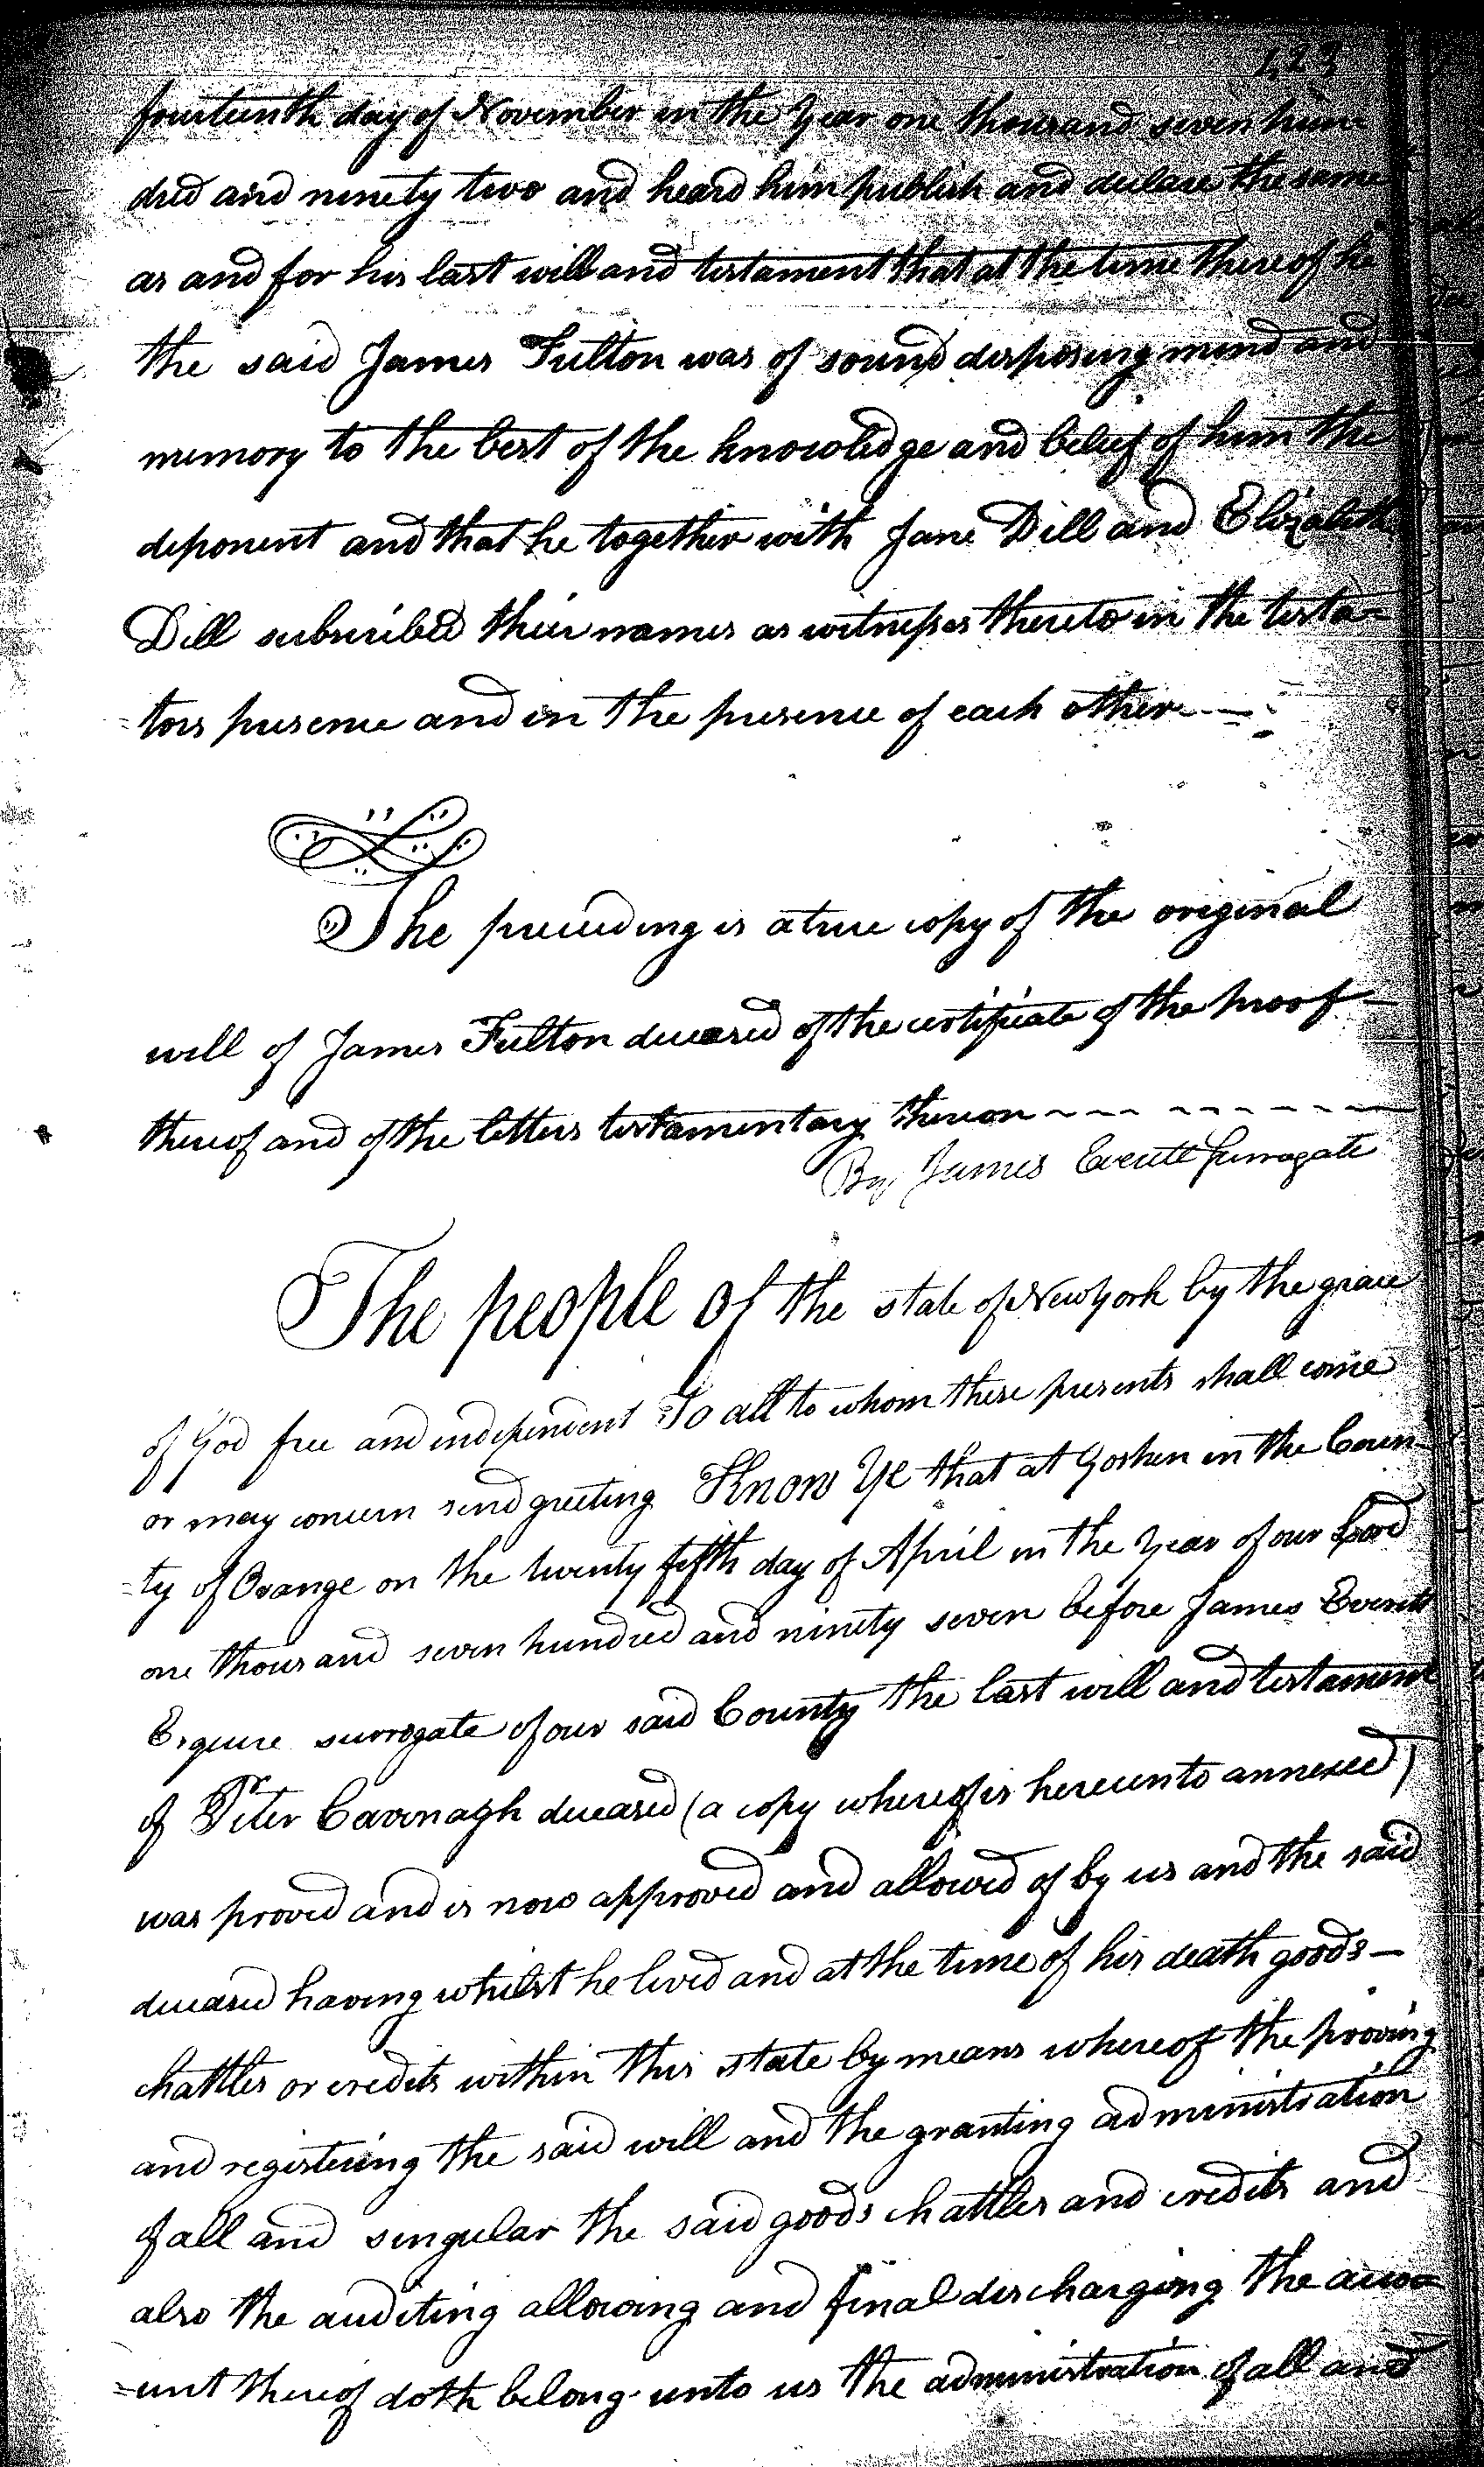 123
fourteenth day of November in the Year one thousand seven hun
dred and ninety two and heard him publish and declare the same
as and for his last will and testament that at the time thereof he
the said James Fulton was of sound disposing mind and
memory to the best of the knowledge and belief of him the
deponent and that he together with Jane Dill and Elizabeth
Dill subscribed their names as witnesses thereto in the testa=
=tors presence and in the presence of each other
The preceeding is a true copy of the original
will of James Fulton deceased of the certificate of the proof
thereof and of the letters testamentary thereon
By James Everett Surrogate
The people of the state of New York by the grace
of God free and independent To all to whom these presents shall come
or may concern send greeting Know Ye that at Goshen in the Coun
=ty of Orange on the twenty fifth day of April in the Year of our Lord
one thousand seven hundred and ninety seven before James Everett
Esquire surrogate of our said County the last will and testament
of Peter Cavenagh deceased (a copy whereof is hereunto annexed)
was proved and is now approved and allowed of by us and the said
deceased having whilst he lived and at the time of his death goods
chattles or credits within this state by means whereof the proving
and registering the said will and the granting administration
of all and singular the said goods chattles and credits and
also the auditing allowing and final discharging the acco=
=unt thereof doth belong unto us the administration of all and